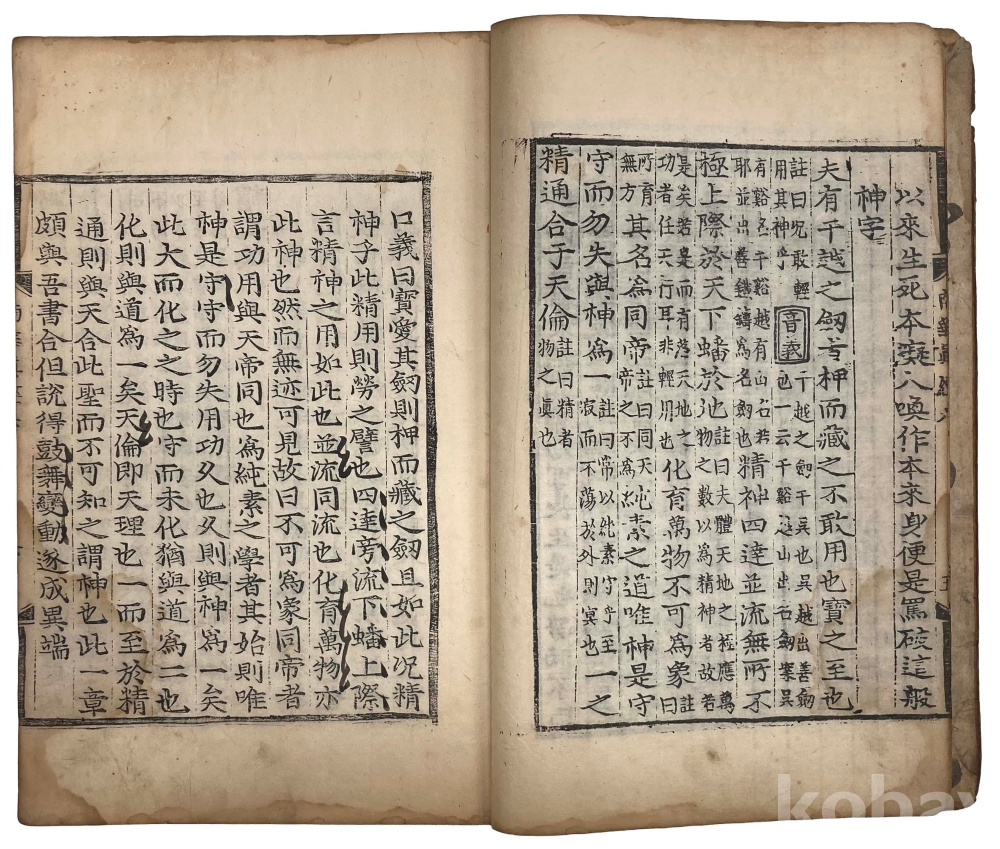 以來生死本癡人喚作本來身便是罵破這般
神字
夫有干越之劒者柙而藏之不敢用也寶之至也
註曰况敢輕用其神乎 音義 干越之劒干吳也吳越出善劒也一云干谿越山出名劒案吳
有谿名干谿越有山名若耶並出善鐵鑄爲名劒也精神四達並流無所不
極上際於天下蟠於地註曰夫體天地之極應萬物之數以爲精神者故若
是矣若是而有落天地之功者任天行耳非輕用也化育萬物不可爲象註曰
所育無方其名爲同帝註曰同天帝之不爲純素之道唯神是守
守而勿失與神爲一註曰常以純素守乎至寂而不蕩於外則冥也一之
精通合于天倫註曰精者物之眞也
口義曰寶愛其劒則柙而藏之劒且如此况精
神乎此精用則勞之譬也四達旁流下蟠上際
言精神之用如此也並流同流也化育萬物亦
此神也然而無迹可見故曰不可爲象同帝者
謂功用與天帝同也爲純素之學者其始則唯
神是守守而勿失用功久也久則與神爲一矣
此大而化之之時也守而未化猶與道爲二也
化則與道爲一矣天倫即天理也一而至於精
通則與天合此聖而不可知之謂神也此一章
頗與吾書合但說得鼓舞變動遂成異端
kobay